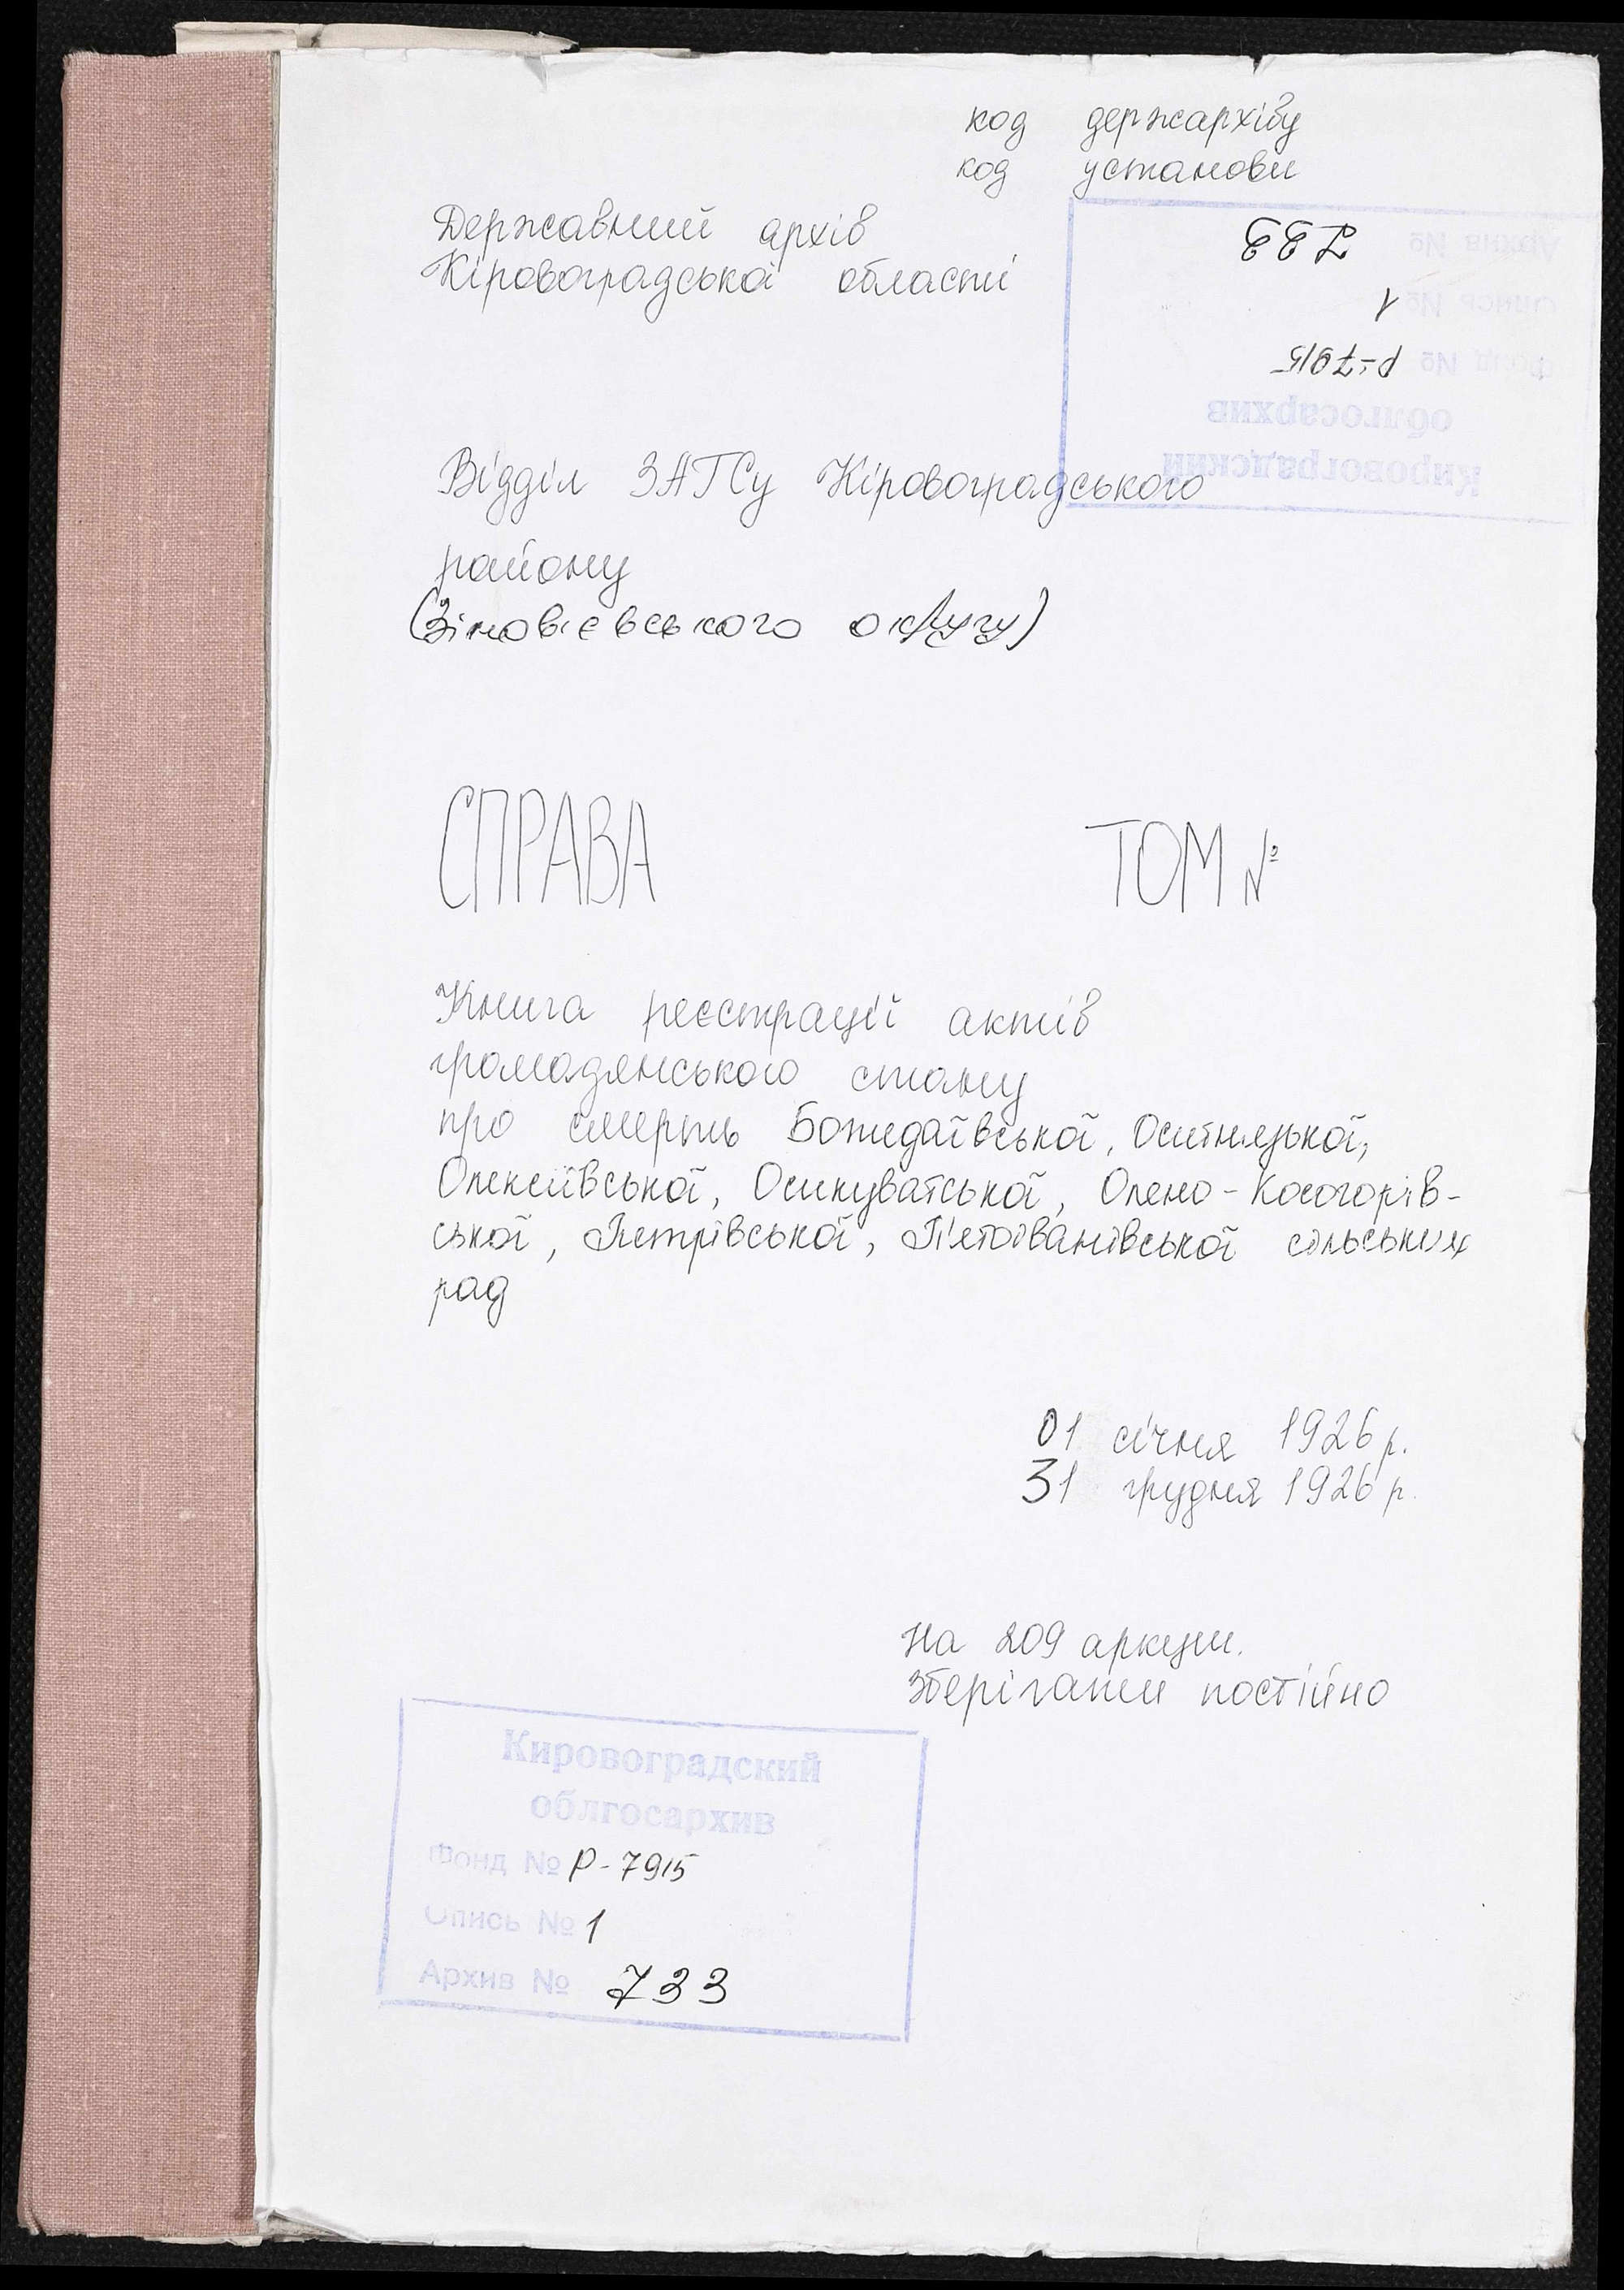 код держархіву
код установи
Державний архів
Кіровоградської області
Кировоградский
облгосархив
Фонд № Р-7915
Опись № 1
Архив № 733
Відділ ЗАГСу Кіровоградського
району
(Зінов'євського округу)
СПРАВА ТОМ №
Книга реєстрації актів
громадянського стану
про смерть Божедаївської, Оситнязької,
Олексіївської, Осикуватської, Олено-Косогорів-
ської, Петрівської, П'ятоіванівської сільських
рад
01 січня 1926 р.
31 грудня 1926 р.
На 209 аркуш.
Зберігати постійно
Кировоградский
облгосархив
Фонд № Р-7915
Опись № 1
Архив № 733